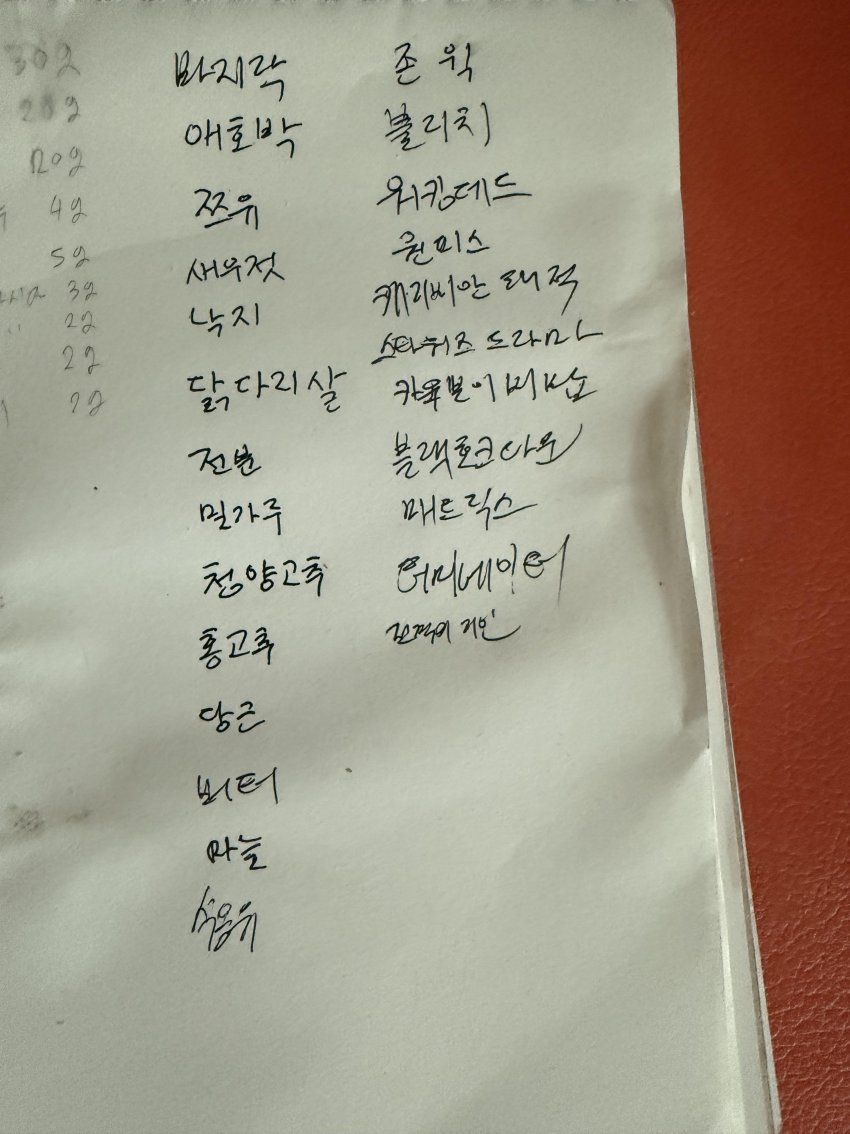 30g
20g
120g
4g
5g
3g
2g
2g
2g
바지락
애호박
쯔유
새우젓
낙지
닭다리살
전분
밀가루
청양고추
홍고추
당근
버터
마늘
식용유
존 윅
블리치
워킹데드
원피스
캐리비안 해적
스타워즈 드라마
카우보이비밥
블랙호크다운
매트릭스
터미네이터
진격의 거인